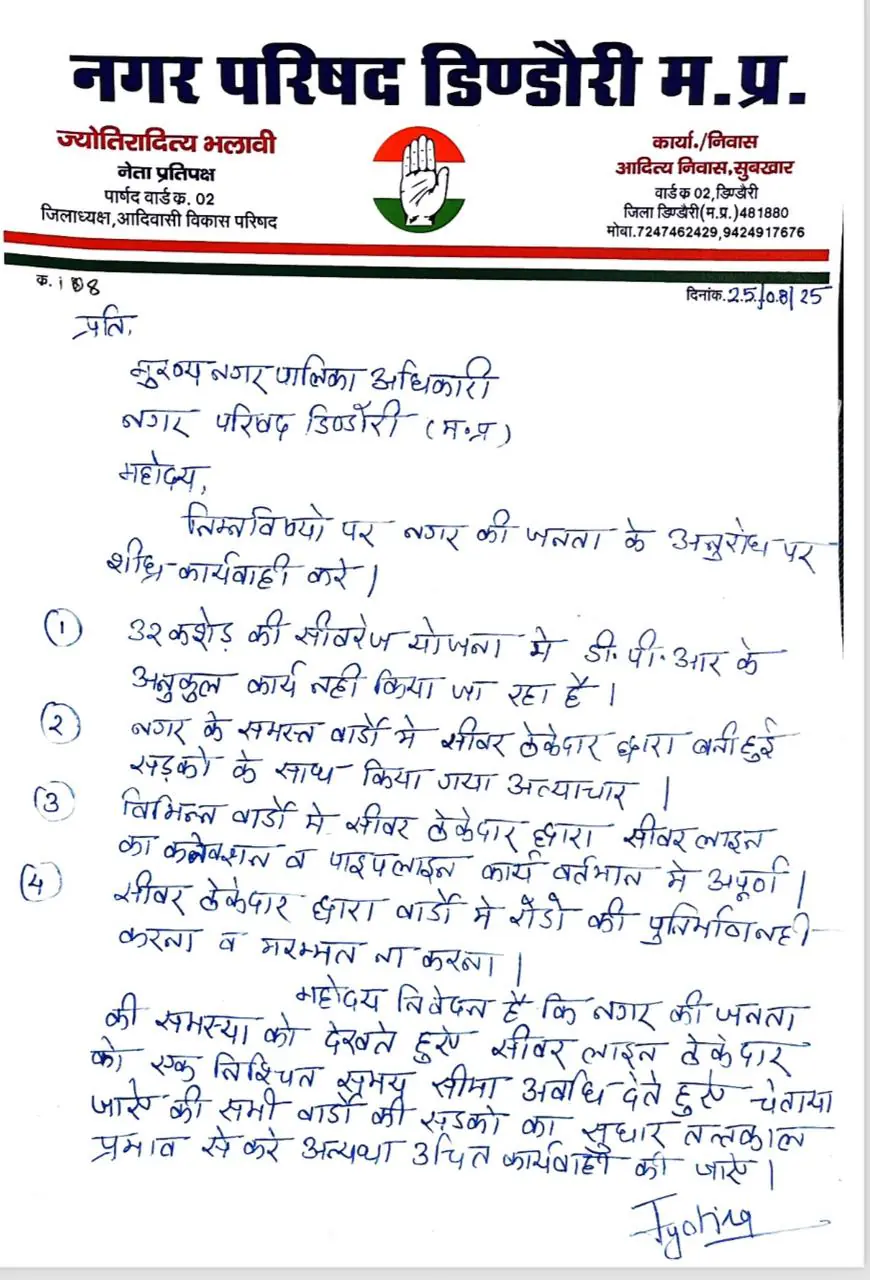 नगर परिषद डिण्डौरी म.प्र.
ज्योतिरादित्य भलावी
नेता प्रतिपक्ष
पार्षद वार्ड क. 02
जिलाध्यक्ष,आदिवासी विकास परिषद
कार्या./निवास
आदित्य निवास,सुबखार
वार्ड क 02,डिण्डौरी
जिला डिण्डौरी(म.प्र.)481880
मोबा.7247462429,9424917676
क. 108
दिनांक.25/08/25
प्रति,
मुख्य नगर पालिका अधिकारी
नगर परिषद डिण्डौरी (म.प्र)
महोदय,
निम्न विषयो पर नगर की जनता के अनुरोध पर
शीध्र कार्यवाही करे।
① 32 करोड़ की सीवरेज योजना मे डी.पी.आर के
अनुकुल कार्य नही किया जा रहा है।
② नगर के समस्त वार्डो मे सीवर ठेकेदार द्वारा बनी हुई
सड़को के साथ किया गया अत्याचार।
③ विभिन्न वार्डो मे सीवर ठेकेदार द्वारा सीवर लाइन
का कनेक्शन व पाइपलाइन कार्य वर्तमान मे अपूर्ण।
④ सीवर ठेकेदार द्वारा वार्डो मे रोडो की पुर्निर्माण नही
करना व मरम्मत ना करना।
महोदय निवेदन है कि नगर की जनता
की समस्या को देखते हुए सीवर लाइन ठेकेदार
को एक निश्चित समय सीमा अवधि देते हुए चेताया
जाए की सभी वार्डो की सड़को का सुधार तत्काल
प्रभाव से करे अन्यथा उचित कार्यवाही की जाए।